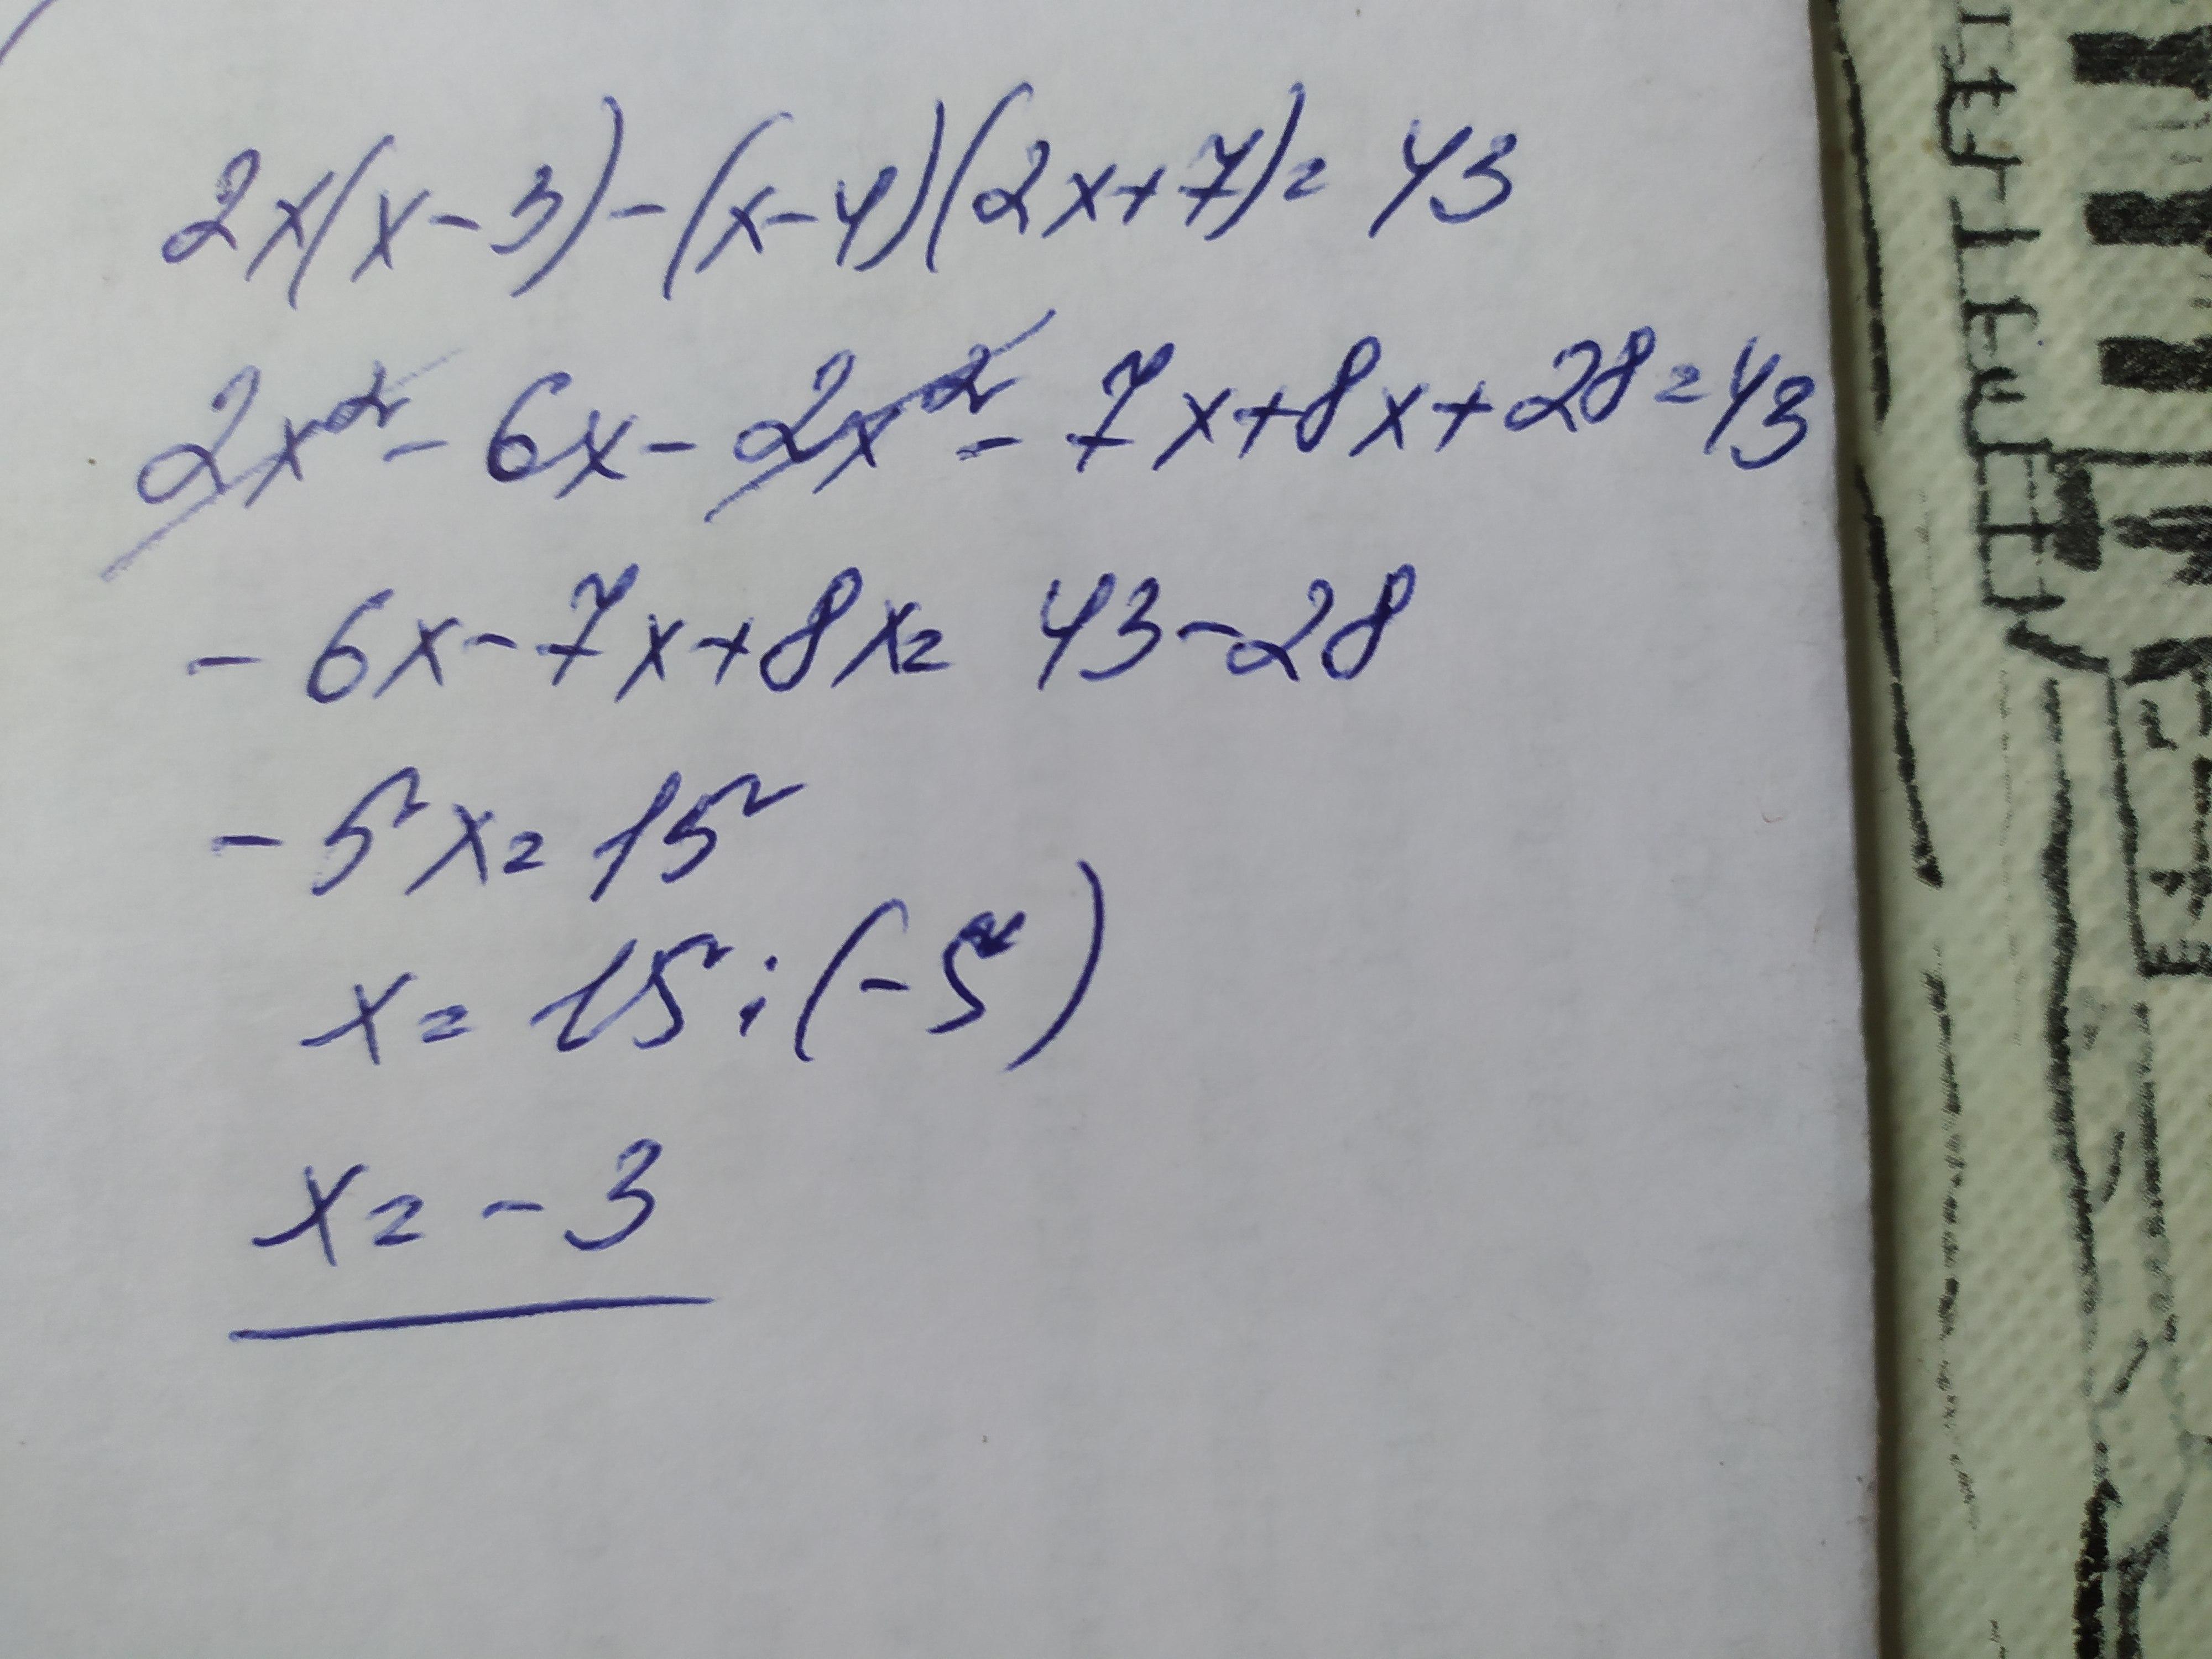 2x(x-3)-(x-4)(2x+7)=43
2x²-6x-2x²-7x+8x+28=43
-6x-7x+8x=43-28
-5x=15
x=15:(-5)
x=-3